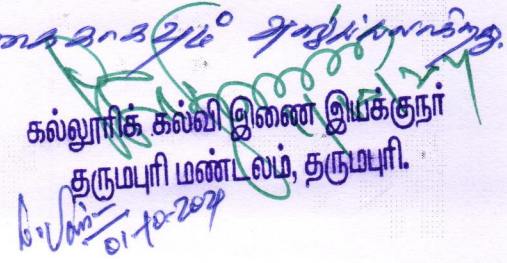 கைகாகவும் அனுப்பலாகிறது.
கல்லூரிக் கல்வி இணை இயக்குநர்
தருமபுரி மண்டலம், தருமபுரி.
01-10-2021